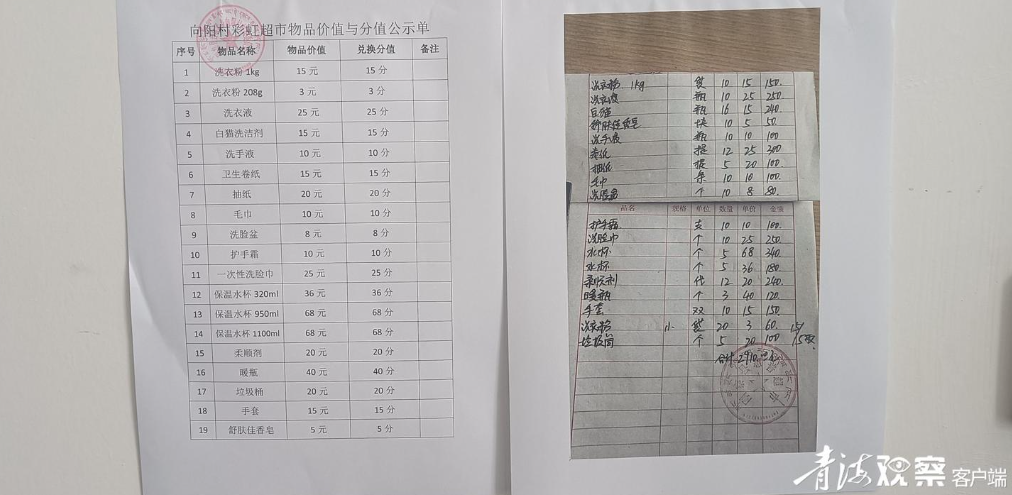 向阳村彩虹超市物品价值与分值公示单
序号 物品名称 物品价值 兑换分值 备注
1 洗衣粉 1kg 15 元 15 分
2 洗衣粉 208g 3 元 3 分
3 洗衣液 25 元 25 分
4 白猫洗洁剂 15 元 15 分
5 洗手液 10 元 10 分
6 卫生卷纸 15 元 15 分
7 抽纸 20 元 20 分
8 毛巾 10 元 10 分
9 洗脸盆 8 元 8 分
10 护手霜 10 元 10 分
11 一次性洗脸巾 25 元 25 分
12 保温水杯 320ml 36 元 36 分
13 保温水杯 950ml 68 元 68 分
14 保温水杯 1100ml 68 元 68 分
15 柔顺剂 20 元 20 分
16 暖瓶 40 元 40 分
17 垃圾桶 20 元 20 分
18 手套 15 元 15 分
19 舒肤佳香皂 5 元 5 分
洗衣粉 1kg 袋 10 15 150.
洗衣液 瓶 10 25 250
瓶 16 15 240
舒肤佳香皂 块 10 5 50
洗手液 瓶 10 10 100
卷纸 提 12 25
抽纸 提 5 20 100
毛巾 条 10 10 100
洗脸盆 个 10 8 80
品名 规格 单位 数量 单价 金额
护手霜 支 10 10 100
洗脸巾 个 10 25 250
水杯 个 5 68 340
水杯 个 5 36 180
柔顺剂 12 20 240
暖瓶 个 3 40 120
手套 双 10 15 150
洗衣粉 袋 20 3 60
垃圾筒 个 5 20 100
合计
青海观察 客户端